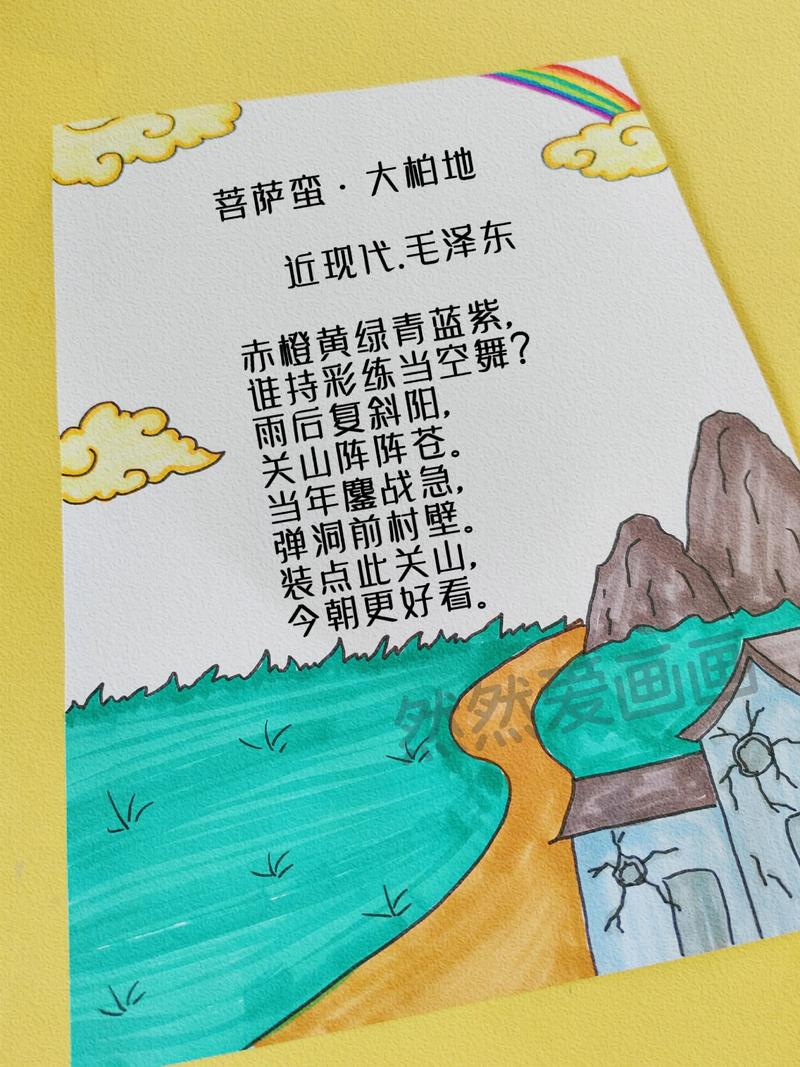 菩萨蛮·大柏地
近现代.毛泽东
赤橙黄绿青蓝紫,
谁持彩练当空舞?
雨后复斜阳,
关山阵阵苍。
当年鏖战急,
弹洞前村壁。
装点此关山,
今朝更好看。
然然爱画画